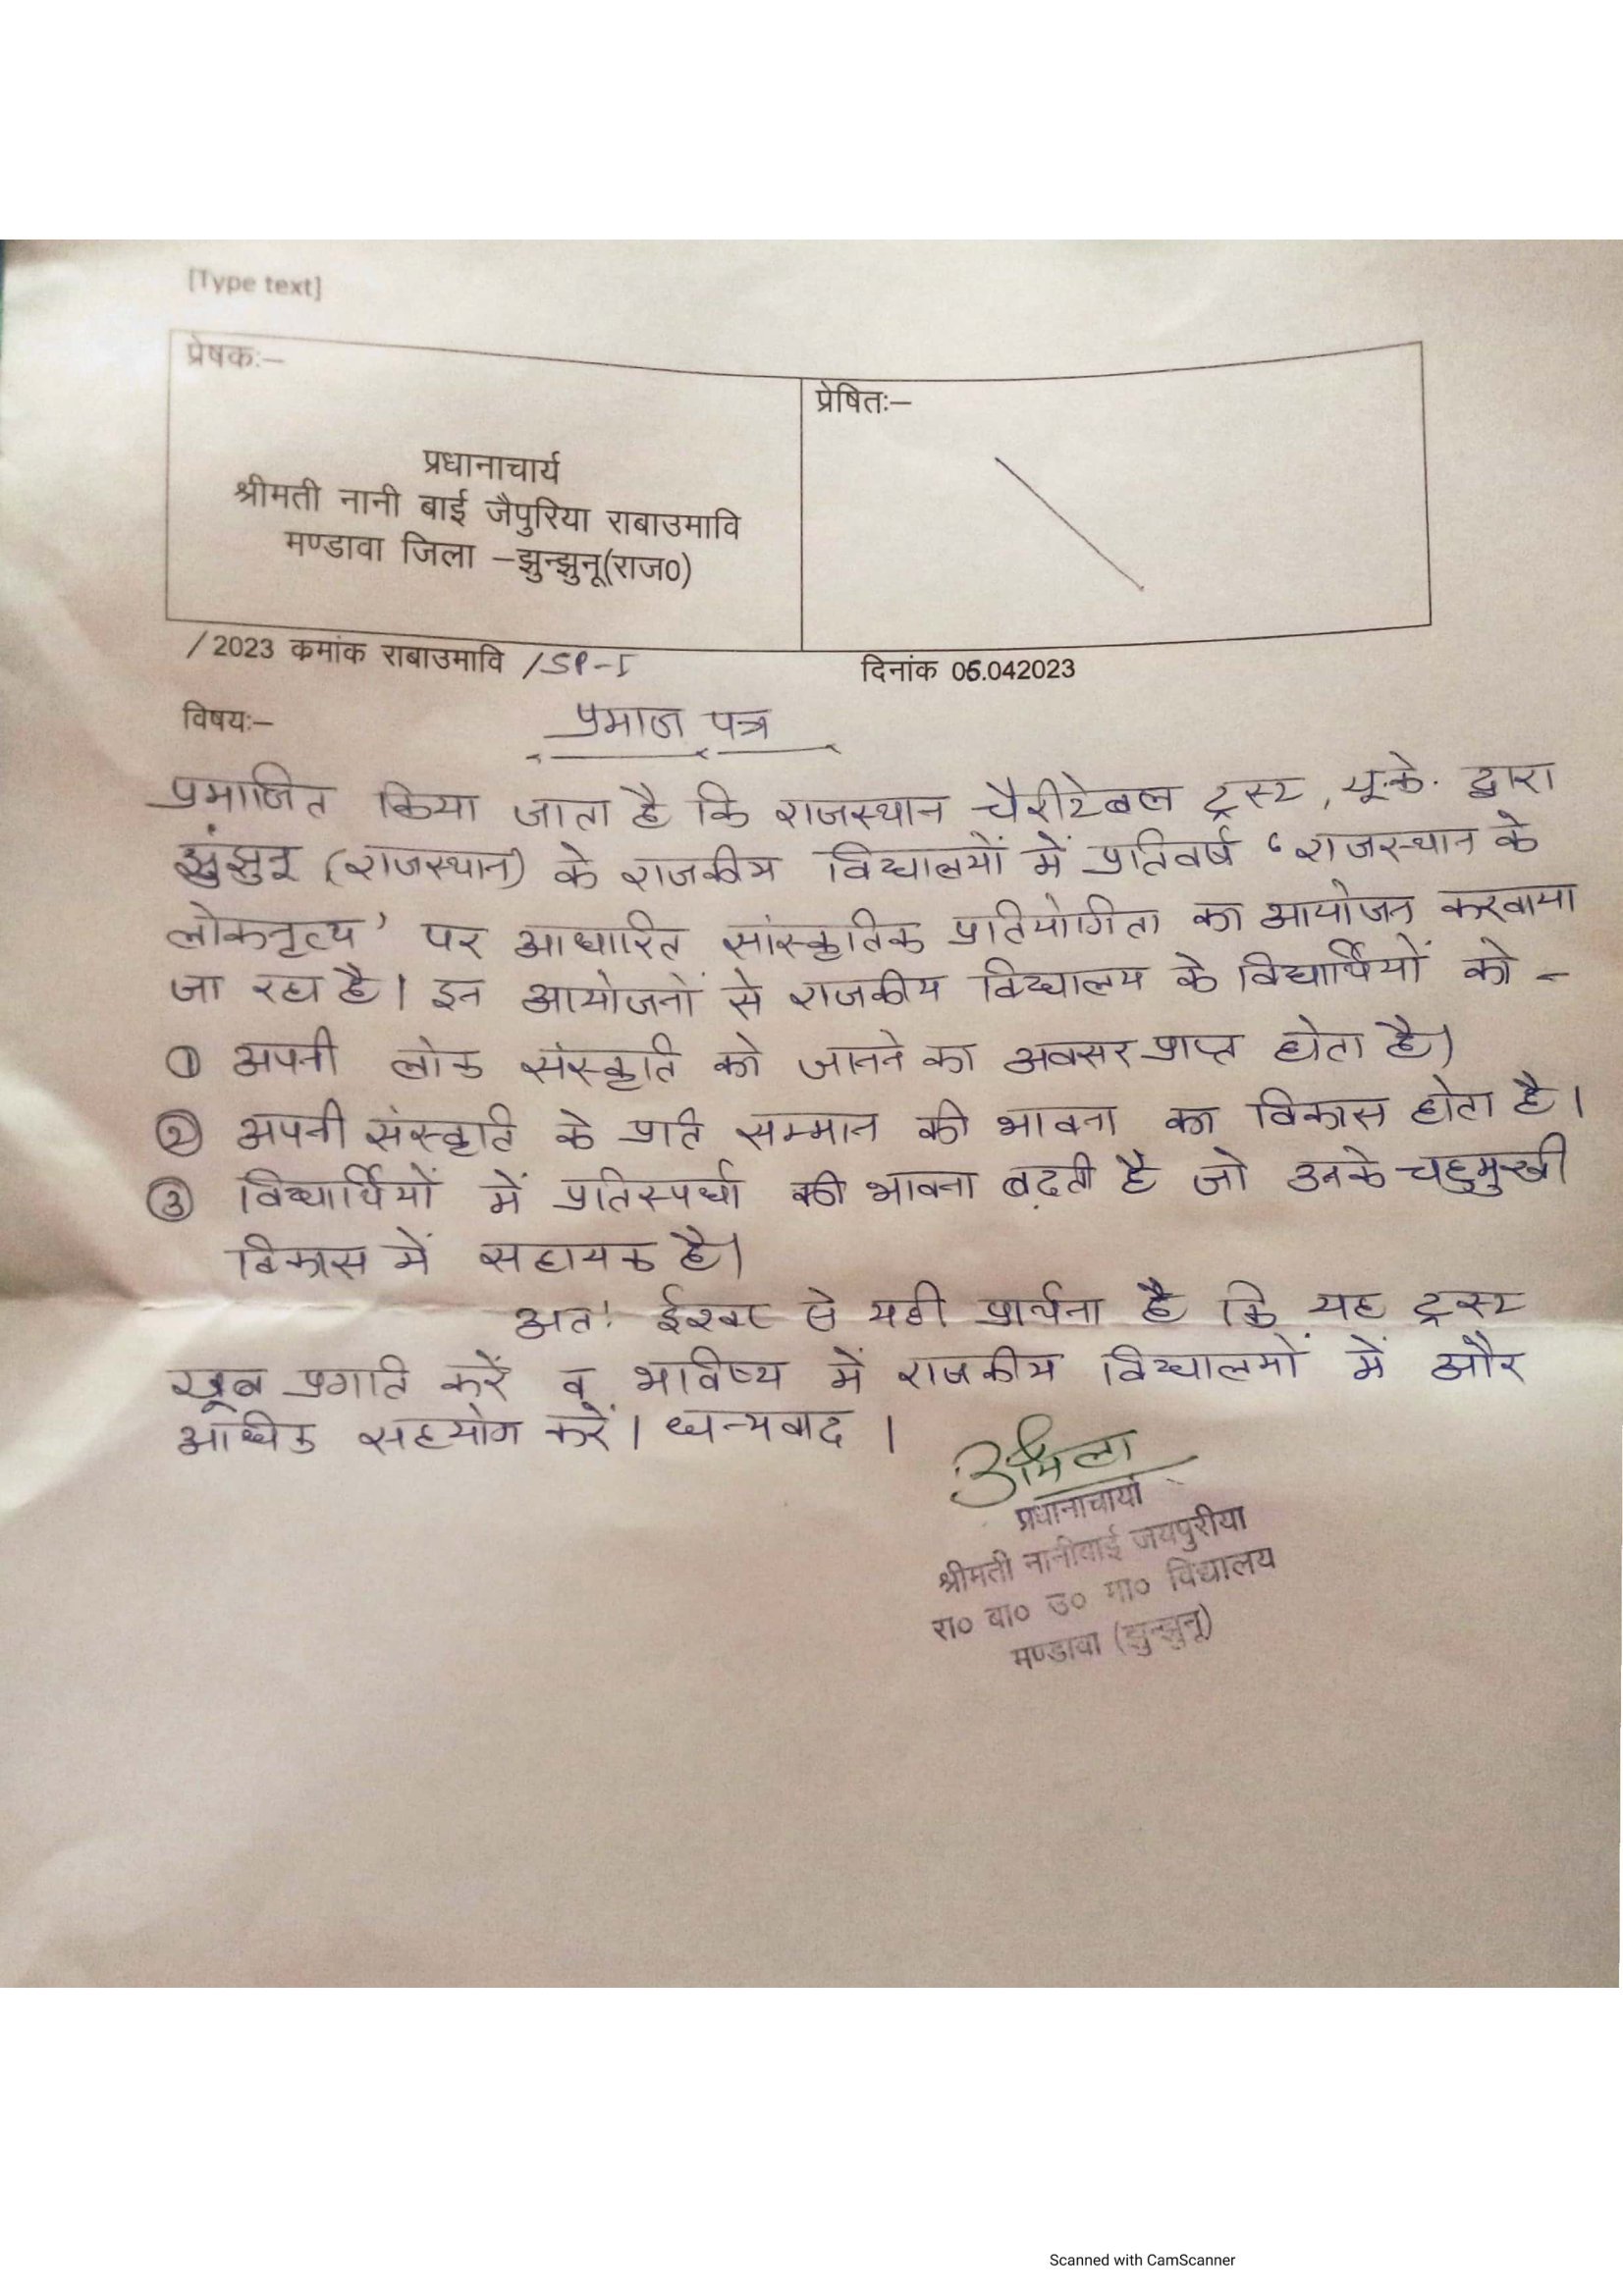 [Type text]
प्रेषकः–
प्रधानाचार्य
श्रीमती नानी बाई जैपुरिया राबाउमावि
मण्डावा जिला –झुन्झुनू(राज0)
प्रेषितः–
/2023 कमांक राबाउमावि /SP-I
दिनांक 05.042023
विषयः–
प्रमाण पत्र
प्रमाणित किया जाता है कि राजस्थान चैरीटेबल ट्रस्ट, यू.के. द्वारा
झुंझुनू (राजस्थान) के राजकीय विद्यालयों में प्रतिवर्ष 'राजस्थान के
लोकनृत्य' पर आधारित सांस्कृतिक प्रतियोगिता का आयोजन करवाया
जा रहा है। इन आयोजनों से राजकीय विद्यालय के विद्यार्थियों को -
① अपनी लोक संस्कृति को जानने का अवसर प्राप्त होता है।
② अपनी संस्कृति के प्रति सम्मान की भावना का विकास होता है।
③ विद्यार्थियों में प्रतिस्पर्धा की भावना बढ़ती है जो उनके चहुमुखी
विकास में सहायक है।
अतः ईश्वर से यही प्रार्थना है कि यह ट्रस्ट
खूब प्रगति करें व भविष्य में राजकीय विद्यालयों में और
अधिक सहयोग करें। धन्यवाद ।
प्रधानाचार्या
श्रीमती नानीबाई जयपुरीया
रा० बा० उ० मा० विद्यालय
मण्डावा (झुन्झुनू)
Scanned with CamScanner